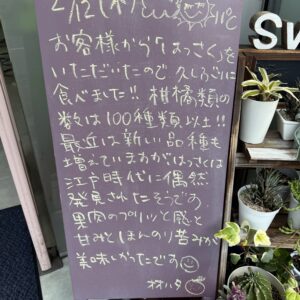 2/12(木)
お客様から「はっさく」を
いただいたので 久しぶりに
食べました!! 柑橘類の
数は100種類以上!!
最近は新しい品種も
増えていえるがはっさくは
江戸時代に偶然
発見されたそうです。
果肉のプリッと感と
甘みとほんのり苦みが
美味しかったです
SW